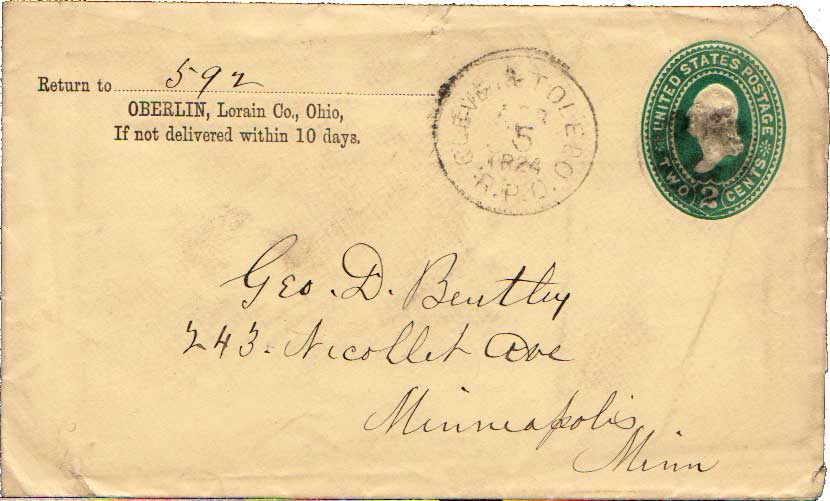 Return to 592
OBERLIN, Lorain Co., Ohio,
If not delivered within 10 days.
CLEVE. & TOLEDO
5
R.P.O.
UNITED STATES POSTAGE
TWO 2 CENTS
Geo. D. Bentley
243. Nicollet Ave
Minneapolis
Minn